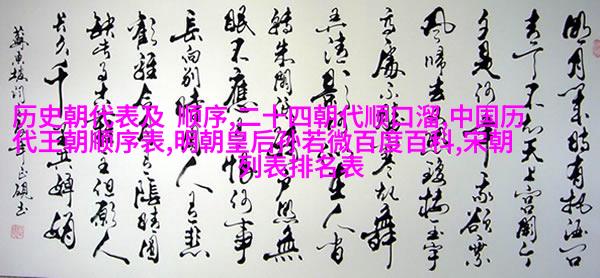 历史朝代表及 顺序,二十四朝代顺口溜,中国历
代王朝顺序表,明朝皇后孙若微百度百科,宋朝
列表排名表
明月几时有把酒问
青天不知天上宫阙今
夕是何年我欲乘
风归去又恐琼楼玉宇
高处不胜寒起舞
弄清影何似在人间
转朱阁低绮户照无
眠不应有恨何事
长向别时圆人有悲
欢离合月有阴晴圆
缺此事古难全但愿人
长久千里共婵娟
苏东坡词